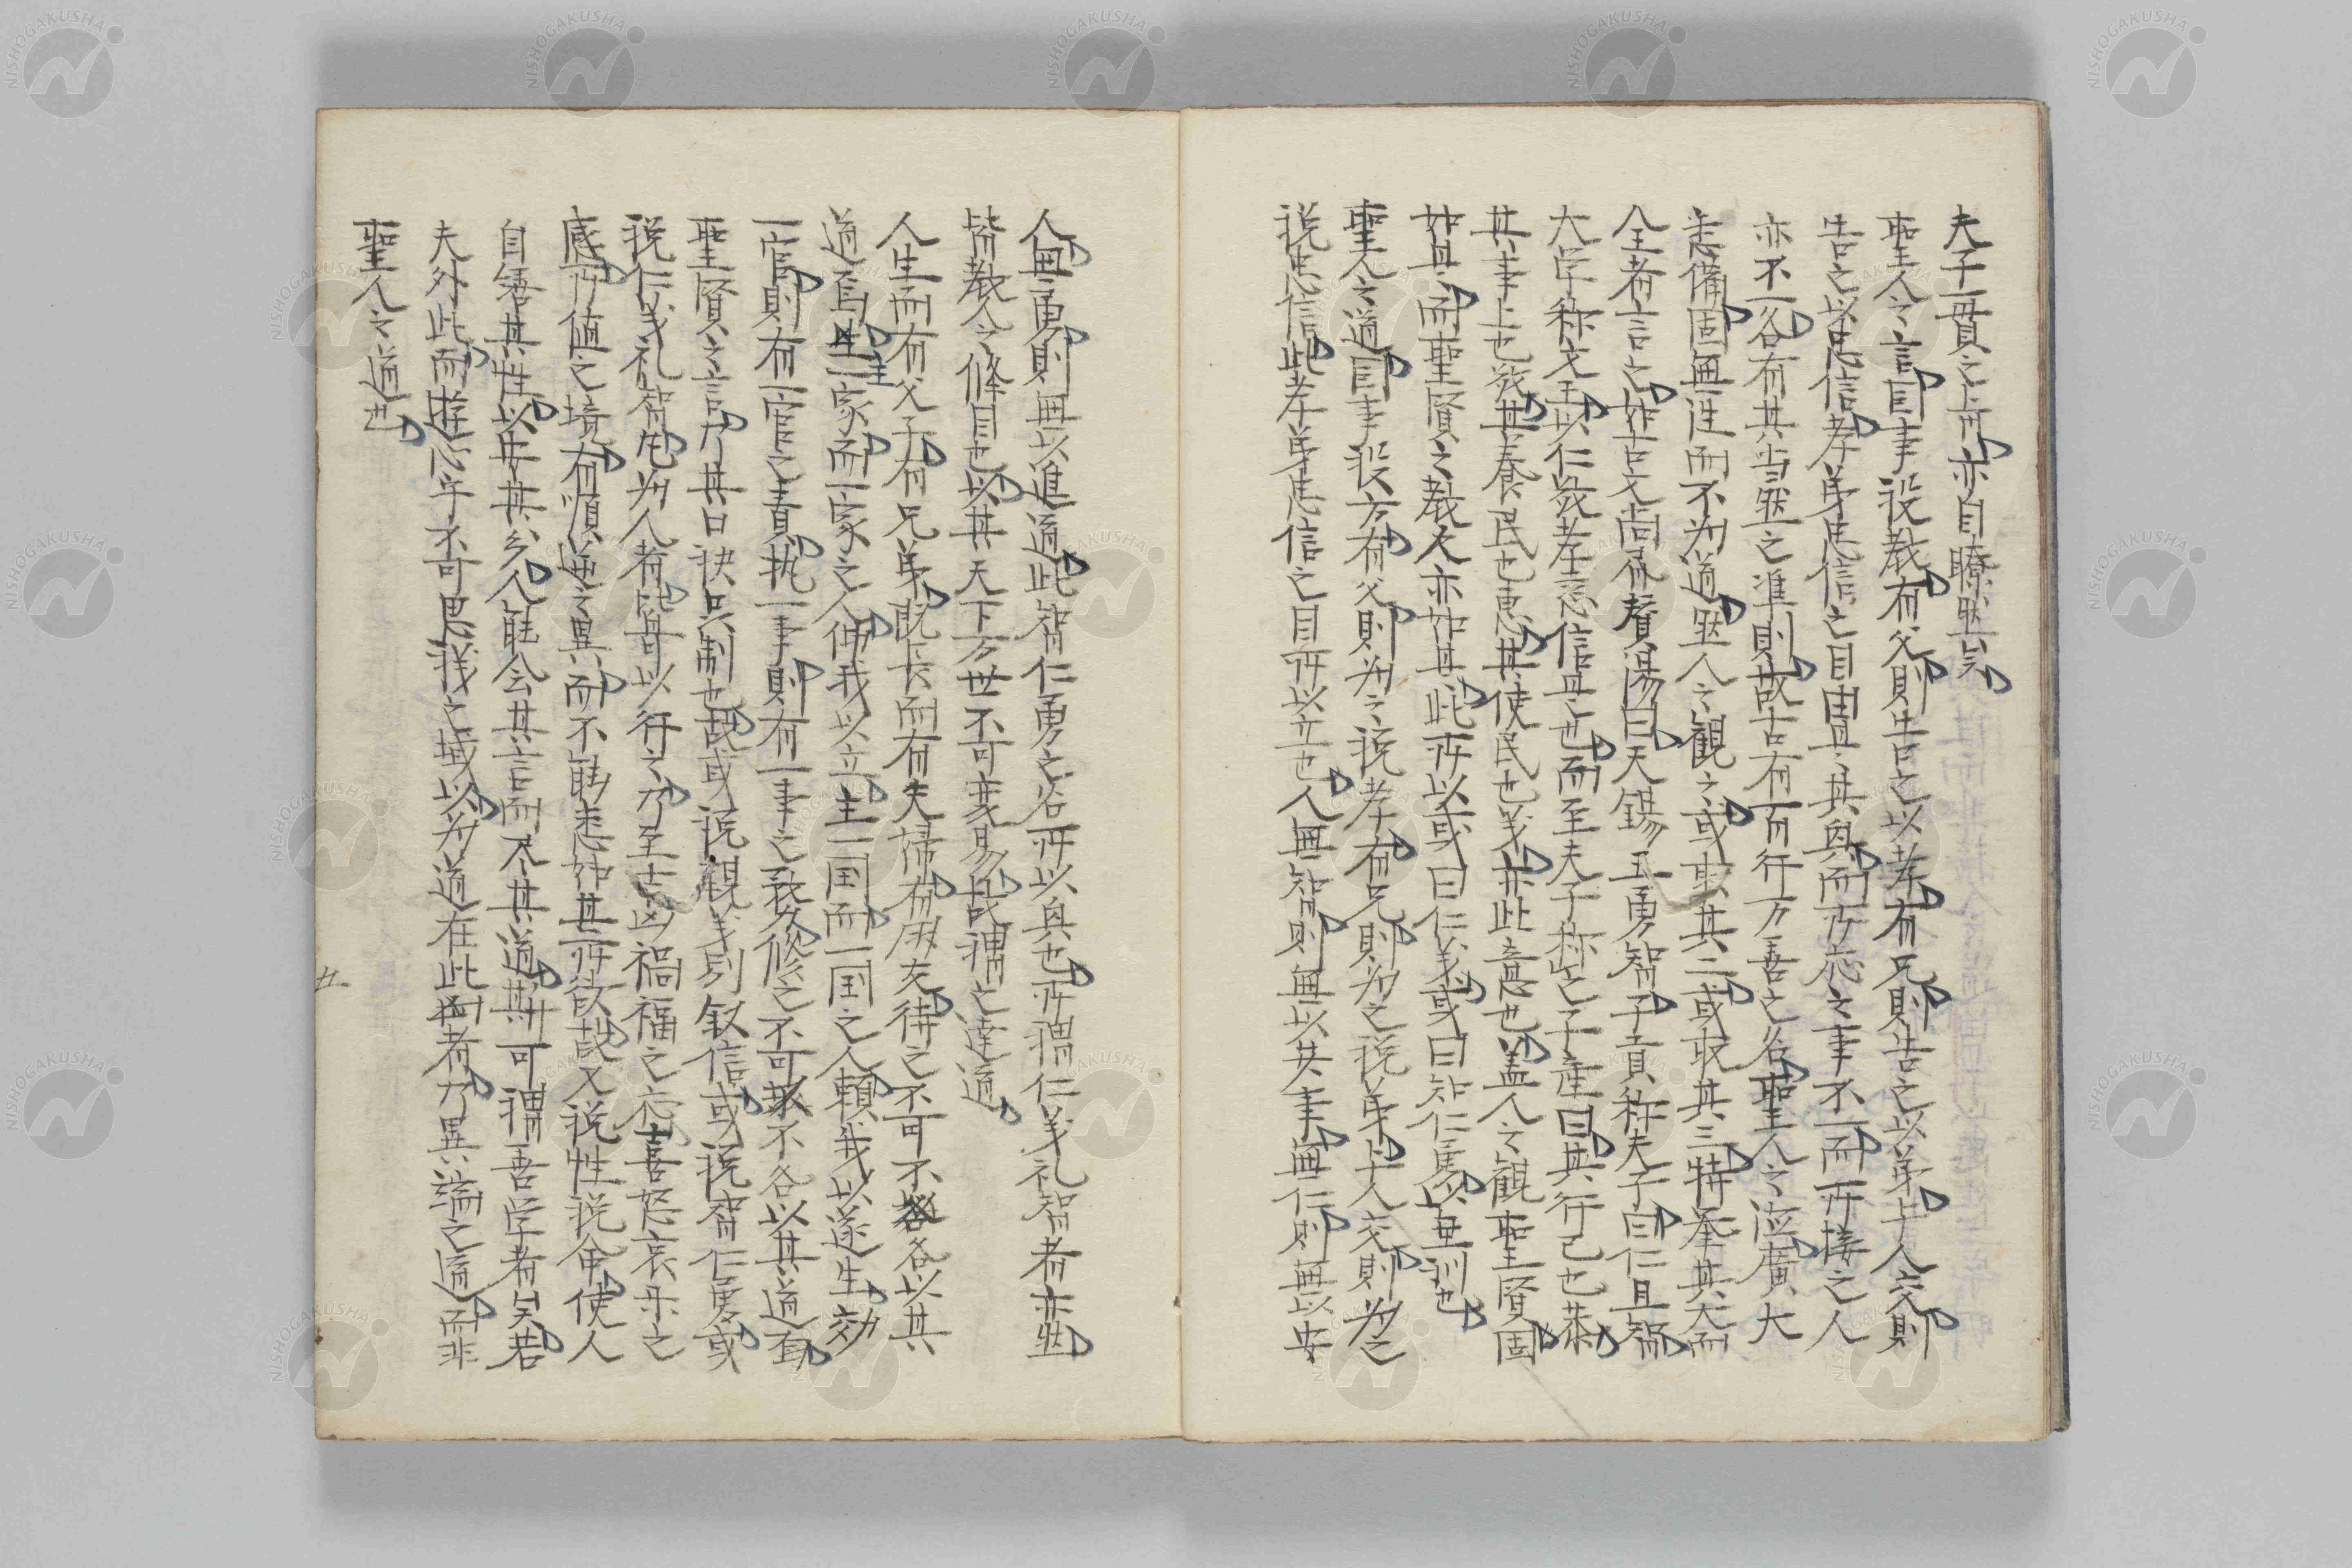 夫子一貫之旨亦自瞭然矣
聖人之言因事設教有父則告之以孝有兄則告之以弟与人交則
告之以忠信孝弟忠信之目固具其與而所応之事不一而所接之人
亦不一各有其当然之準則故古有百行万善之名聖人之道廣大
悉備固無往而不为道然人之観之或取其二或取其三特挙其大而
全者言之如古文尚書賛湯曰天錫王勇智子貢称夫子曰仁且智
大学称文王以仁敬孝慈信是也而至夫子称之子産曰其行己也恭
其事上也敬其養民也恵其使民也義亦此意也盖人之観聖賢固
如其而聖賢之教人亦如其此所以或曰仁義或曰知仁焉以垂訓也
聖人之道因事設方有父則为之説孝有兄則为之説弟与人交則为之
説忠信此孝弟忠信之目所以立也人無智則無以共事無仁則無以安
人無勇則無以進道此智仁勇之名所以與也所謂仁義礼智者亦然
皆教人之條目也以其天下万世不可変易故謂之達道
人生而有父子有兄弟既長而有夫婦有朋友待之不可不各以其
道焉主一家而一家之人仰我以立主一国而一国之人頼我以遂生効
一官則有一官之責執一事則有一事之務修之不可不各以其道面
聖賢之言乃其口訣呉制也故或説親義別叙信或説智仁勇或
説仁義礼智凡为人者皆以行之乃至吉凶禍福之応喜怒哀楽之
感所値之境有順逆之異而不能悉如其所欲故又説性説命使人
自養其性以安其分人能会其言而尽其道斯可謂吾学者矣若
夫外此而遊心乎不可思議之域以为道在此者乃異端之道而非
聖人之道也
五